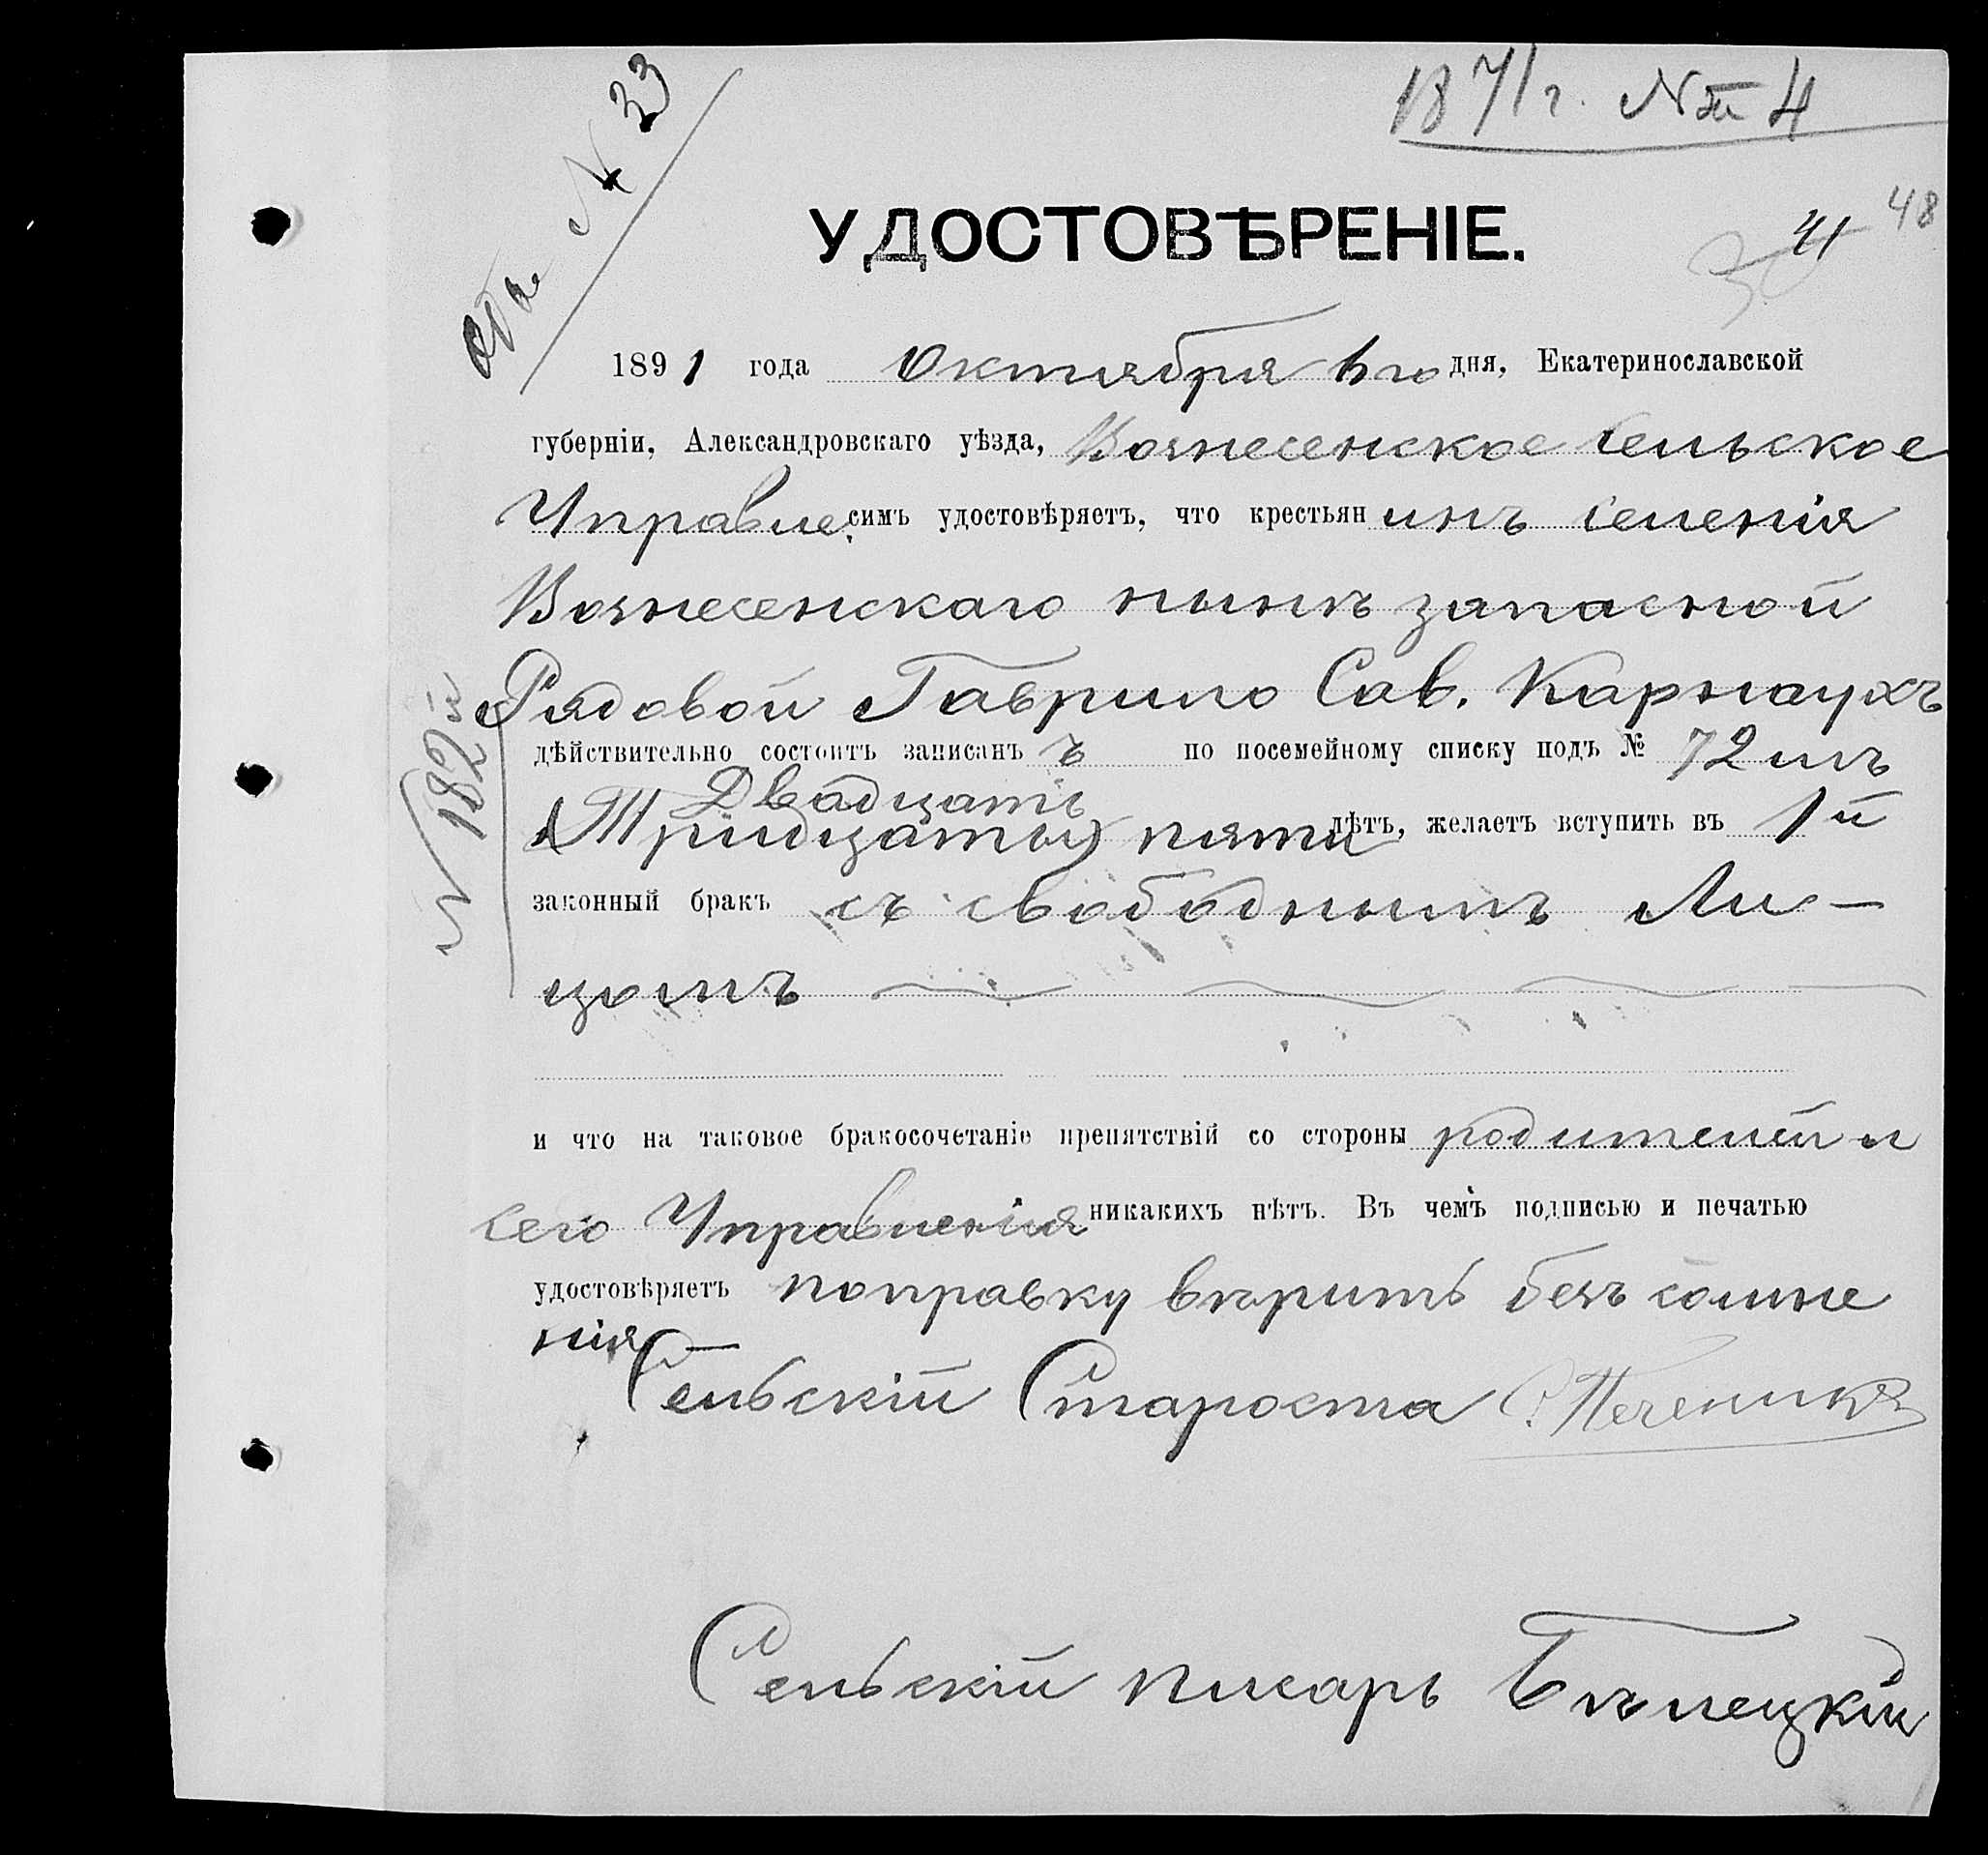 1871 г. № 4
№ 33
48
41
УДОСТОВѢРЕНІЕ.
1891 года Октября 6 го дня, Екатеринославской
губерніи, Александровскаго уѣзда, Вознесенское Сельское
Управле. симъ удостовѣряетъ, что крестьянинъ селенія
Вознесенскаго нынѣ запасной
Рядовой Гаврило Сав. Карнаухъ
дѣйствительно состоитъ записанъ по посемейному списку подъ № 72 мъ
Двадцати
(Тридцаты) пяти лѣтъ, желаетъ вступить въ 1й
законный бракъ съ свободнымъ Ли-
цомъ
№ 182 й
и что на таковое бракосочетаніе препятствій со стороны родителей и
сего Управленія никакихъ нѣтъ. Въ чемъ подписью и печатью
удостовѣряетъ поправку вѣрить безъ сомне
нія —
Сельскій Староста
Сельскій писарь Бѣлецкій